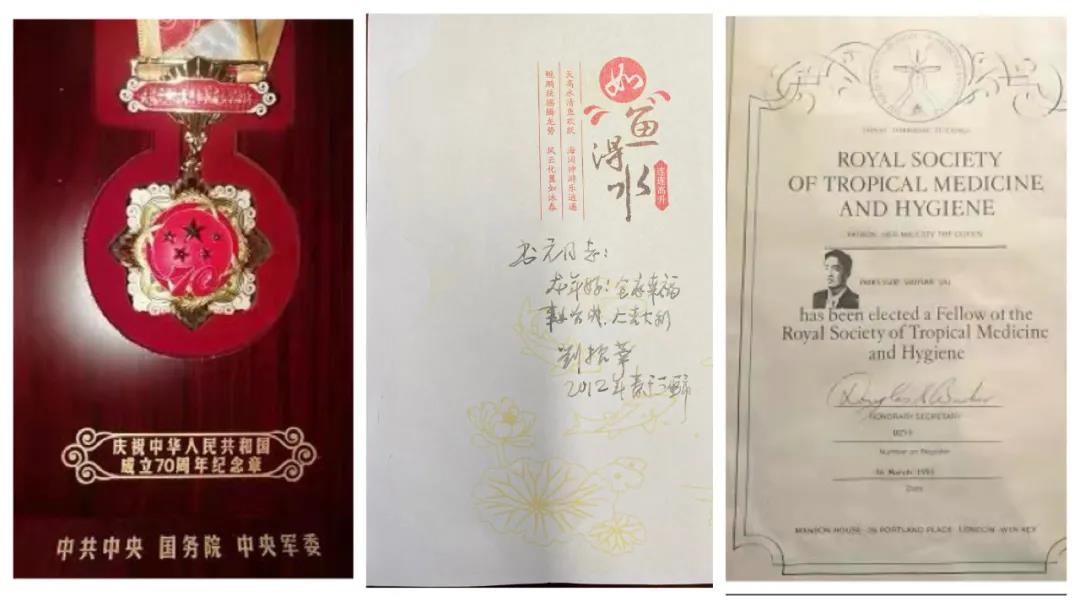 70
庆祝中华人民共和国
成立70周年纪念章
中共中央 国务院 中央军委
如鱼得水
连连高升
天高水清鱼欢跃 海阔神游乐逍遥
鲲鹏扶摇腾龙势 风云化翼如沐春
书元同志:
龙年好!全家幸福
2012年春于三亚
ROYAL SOCIETY
OF TROPICAL MEDICINE
AND HYGIENE
PATRON: HER MAJESTY THE QUEEN
PROFESSOR
has been elected a Fellow of the
Royal Society of Tropical Medicine
and Hygiene
HONORARY SECRETARY
Number on Register
March
Date
MANSON HOUSE · 26 PORTLAND PLACE · LONDON · W1N 4EY